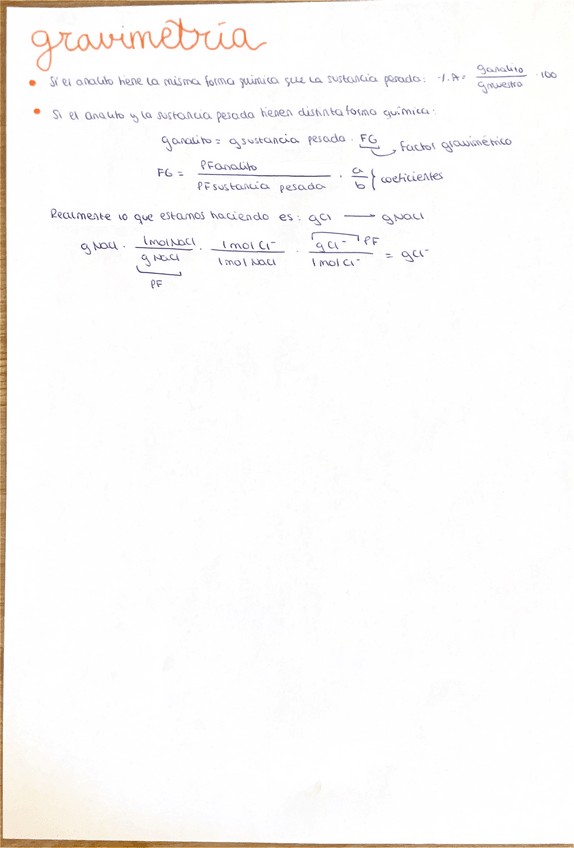 gravimetría
• Si el analito tiene la misma forma química que la sustancia pesada: %A = g analito / g muestra · 100
• Si el analito y la sustancia pesada tienen distinta forma química:
g analito = g sustancia pesada · FG → factor gravimétrico
FG = PF analito / PF sustancia pesada · a / b } coeficientes
Realmente lo que estamos haciendo es: gCl → gNaCl
gNaCl · 1molNaCl / gNaCl · 1molCl⁻ / 1molNaCl · gCl⁻ / 1molCl⁻ = gCl⁻
PF
PF